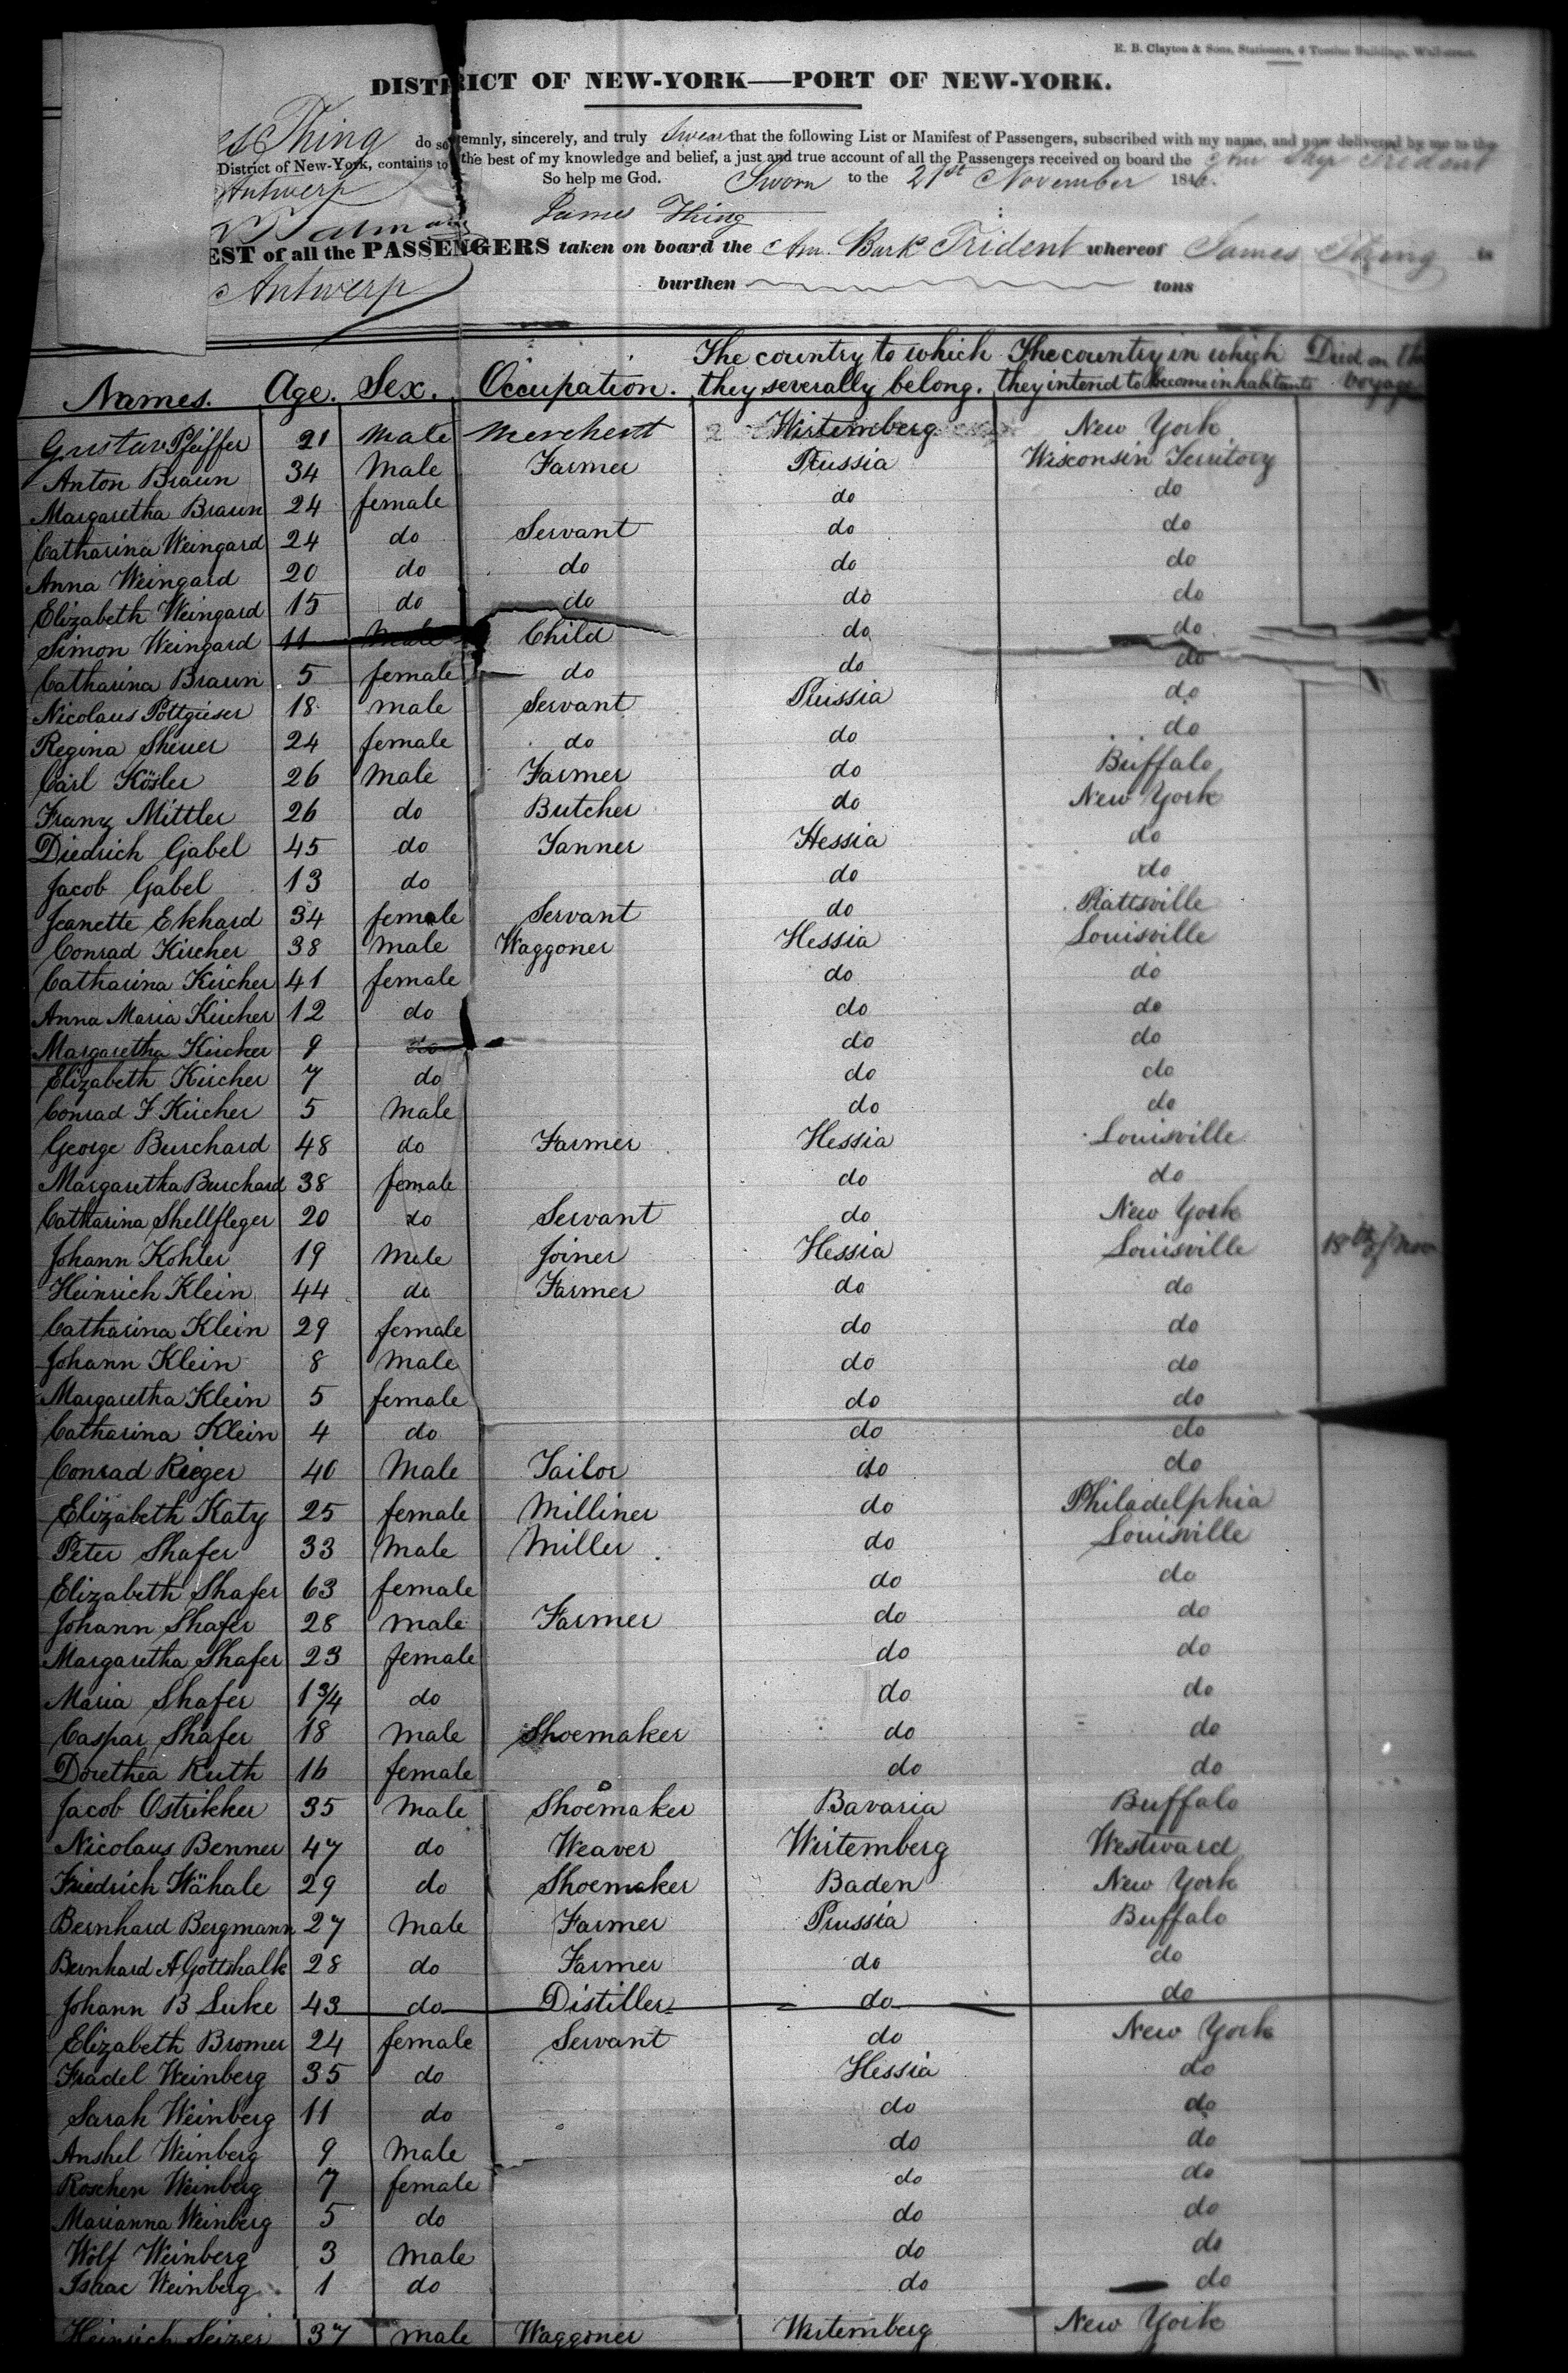 E. B. Clayton & Sons, Stationers, 4 Tontine Buildings, Wall-street.
DISTRICT OF NEW-YORK—PORT OF NEW-YORK.
es Thing do solemnly, sincerely, and truly Swear that the following List or Manifest of Passengers, subscribed with my name, and now delivered by me to the
District of New-York, contains to the best of my knowledge and belief, a just and true account of all the Passengers received on board the Am Ship Trident
Antwerp So help me God. Sworn to the 21st November 184
James Thing
EST of all the PASSENGERS taken on board the Am. Bark Trident whereof James Thing is
Antwerp burthen tons
Names. Age. Sex. Occupation. The country to which they severally belong. The country in which they intend to become inhabitants Died on the voyage
Gustav Pfeiffer 21 Male Merchent Wirtemberg New York
Anton Braun 34 Male Farmer Prussia Wisconsin Territory
Margaretha Braun 24 female do do
Catharina Weingard 24 do Servant do do
Anna Weingard 20 do do do do
Elizabeth Weingard 15 do do do do
Simon Weingard 11 Male Child do do
Catharina Braun 5 female do do do
Nicolaus Pottgieser 18 male Servant Prussia do
Regina Sheuer 24 female do do do
Carl Kösler 26 Male Farmer do Buffalo
Franz Mittler 26 do Butcher do New York
Diedrich Gabel 45 do Tanner Hessia do
Jacob Gabel 13 do do do
Jeanette Ekhard 34 female Servant do Plattsville
Conrad Kircher 38 Male Waggoner Hessia Louisville
Catharina Kircher 41 female do do
Anna Maria Kircher 12 do do do
Margaretha Kircher 9 do do do
Elizabeth Kircher 7 do do do
Conrad F Kircher 5 Male do do
George Burchard 48 do Farmer Hessia Louisville
Margaretha Burchard 38 female do do
Catharina Shellfleger 20 do Servant do New York
Johann Kohler 19 Male Joiner Hessia Louisville 18th of Nov
Heinrich Klein 44 do Farmer do do
Catharina Klein 29 female do do
Johann Klein 8 Male do do
Margaretha Klein 5 female do do
Catharina Klein 4 do do do
Conrad Rieger 40 Male Tailor do do
Elizabeth Katy 25 female Milliner do Philadelphia
Peter Shafer 33 Male Miller do Louisville
Elizabeth Shafer 63 female do do
Johann Shafer 28 Male Farmer do do
Margaretha Shafer 23 female do do
Maria Shafer 1 3/4 do do do
Caspar Shafer 18 Male Shoemaker do do
Dorethea Ruth 16 female do do
Jacob Ostrikker 35 Male Shoemaker Bavaria Buffalo
Nicolaus Benner 47 do Weaver Wirtemberg Westward
Friedrich Wähale 29 do Shoemaker Baden New York
Bernhard Bergmann 27 Male Farmer Prussia Buffalo
Bernhard A Gottshalk 28 do Farmer do do
Johann B Luke 43 do Distiller do do
Elizabeth Bromer 24 female Servant do New York
Fradel Weinberg 35 do Hessia do
Sarah Weinberg 11 do do do
Anshel Weinberg 9 Male do do
Roschen Weinberg 7 female do do
Marianna Weinberg 5 do do do
Wolf Weinberg 3 Male do do
Isaac Weinberg 1 do do do
Heinrich Seizer 37 male Waggoner Wirtemberg New York